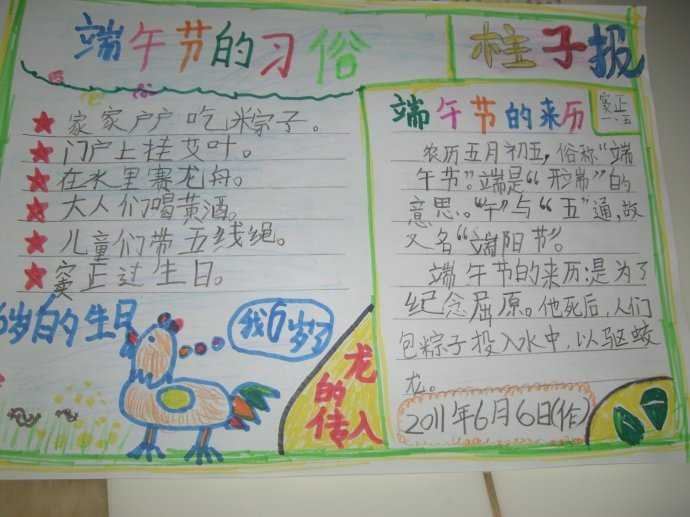 端午节的习俗
柱子报
家家户户吃粽子。
门户上挂艾叶。
在水里赛龙舟。
大人们喝黄酒。
儿童们带五线绳。
窦正过生日。
6岁的生日
我6岁了
龙的传人
端午节的来历
窦正
一、三
农历五月初五，俗称“端
午节”。端是“形端”的
意思。“午”与“五”通，故
又名“端阳节”。
端午节的来历：是为了
纪念屈原。他死后，人们
包粽子投入水中，以驱蛟
龙。
2011年6月6日(作)